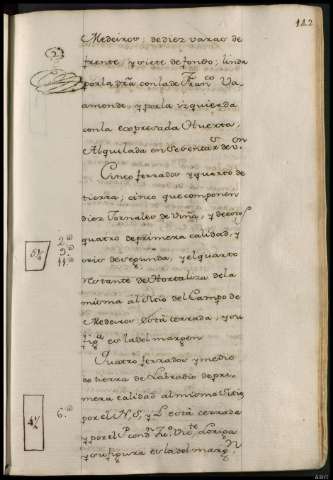 142
Medeiros, de diez varas de
frente, y siete de fondo; linda
por la dra. con la de Franco. Va-
amonde, y por la izquierda
con la expresada Huerta;
Alquilada en sesenta rs. vn.
Cinco ferrados y quarto de
tierra; cinco que componen
diez Jornales de Viña, y de estos
quatro de primera calidad, y
seis de segunda, y el quarto
restante de Hortaliza de la
misma al sitio del Campo de
Medeiros. Está cerrada, y su
figa. es la del margen
Quatro ferrados y medio
de tierra de Labradio de pri-
mera calidad al mismo Sitio,
por el N. S. y L. está cerrada
y por el P. con dn.
y su figura es la del margn.
5¼
2.as
9.as
11.as
4½
6.as